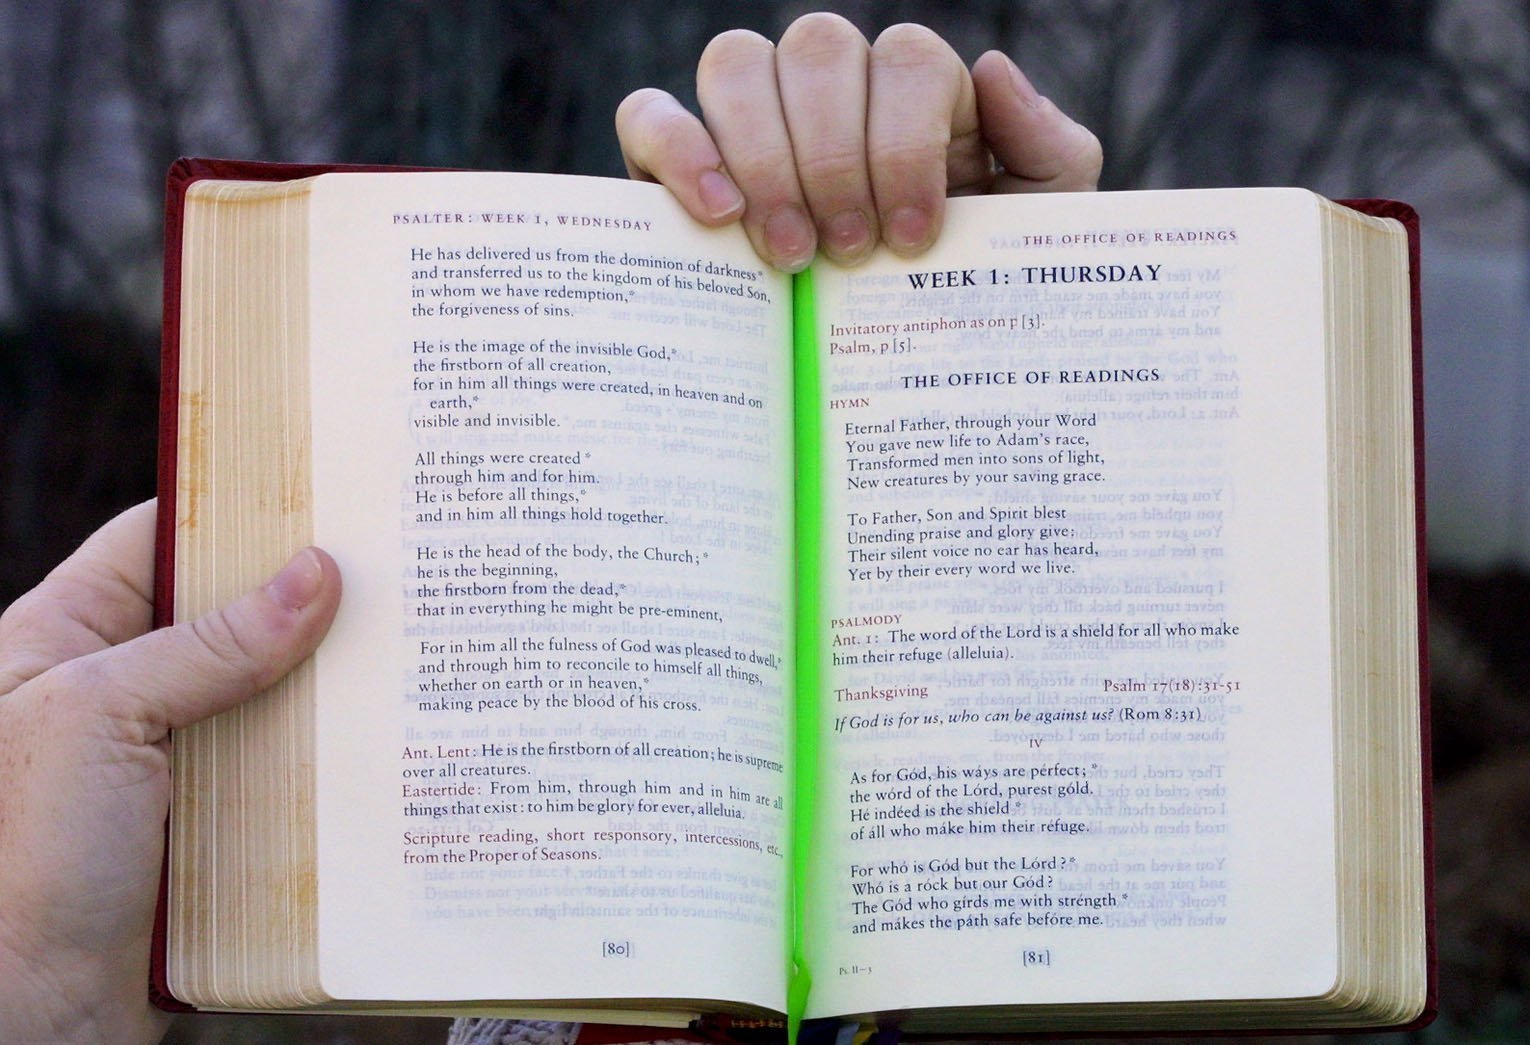 PSALTER: WEEK 1, WEDNESDAY
He has delivered us from the dominion of darkness*
and transferred us to the kingdom of his beloved Son,
in whom we have redemption,*
the forgiveness of sins.
He is the image of the invisible God,*
the firstborn of all creation,
for in him all things were created, in heaven and on
earth,*
visible and invisible.
All things were created *
through him and for him.
He is before all things,*
and in him all things hold together.
He is the head of the body, the Church; *
he is the beginning,
the firstborn from the dead,*
that in everything he might be pre-eminent,
For in him all the fulness of God was pleased to dwell,*
and through him to reconcile to himself all things,
whether on earth or in heaven,*
making peace by the blood of his cross.
Ant. Lent: He is the firstborn of all creation; he is supreme
over all creatures.
Eastertide: From him, through him and in him are all
things that exist: to him be glory for ever, alleluia.
Scripture reading, short responsory, intercessions, etc.,
from the Proper of Seasons.
[80]
THE OFFICE OF READINGS
WEEK 1: THURSDAY
Invitatory antiphon as on p [3].
Psalm, p [5].
THE OFFICE OF READINGS
HYMN
Eternal Father, through your Word
You gave new life to Adam's race,
Transformed men into sons of light,
New creatures by your saving grace.
To Father, Son and Spirit blest
Unending praise and glory give;
Their silent voice no ear has heard,
Yet by their every word we live.
PSALMODY
Ant. 1: The word of the Lord is a shield for all who make
him their refuge (alleluia).
Thanksgiving Psalm 17(18):31-51
If God is for us, who can be against us? (Rom 8:31)
IV
As for Gód, his wáys are pérfect; *
the wórd of the Lórd, purest góld.
Hé indéed is the shíeld *
of áll who máke him their réfuge.
For whó is Gód but the Lórd? *
Whó is a róck but our Gód?
The Gód who gírds me with stréngth *
and mákes the páth safe befóre me.
Ps. II—3
[81]